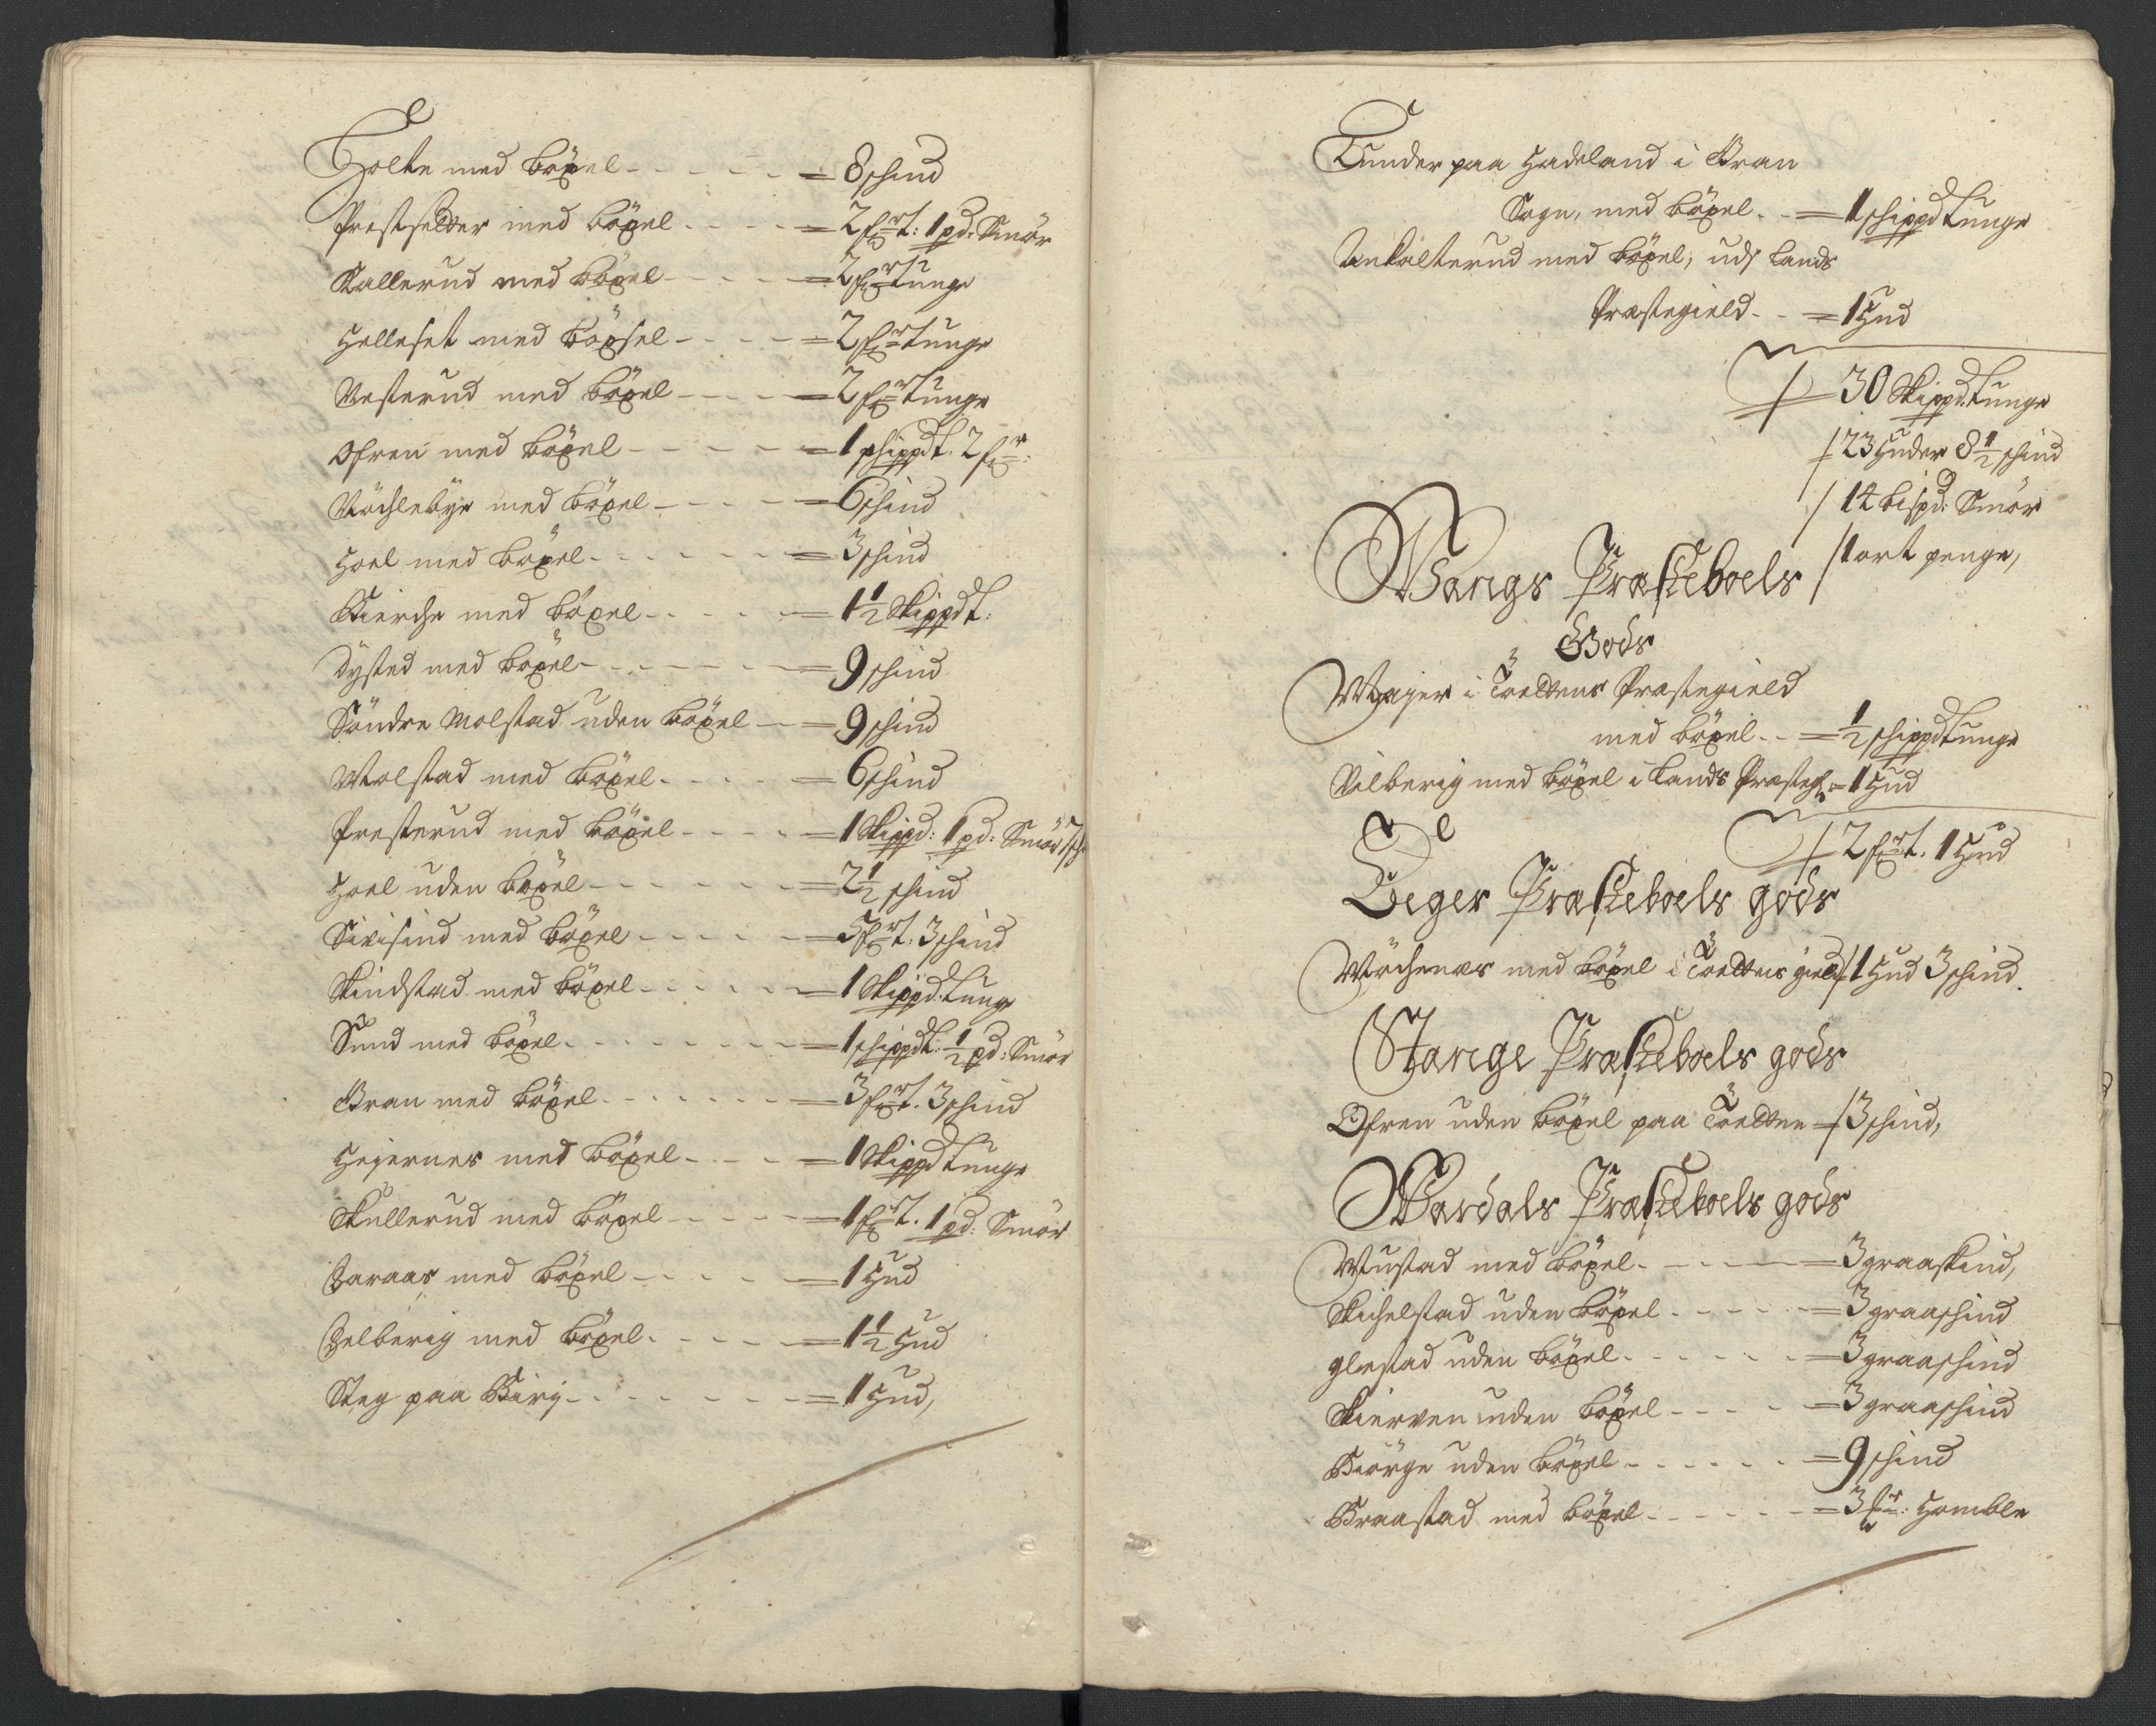 Holte med böxel - - - - = 8 schind
Prestseter med böxel - - - = 2 fr: 1 pd: Smör
Kallerud med böxel - - - = 2 fr tunge
Helleset med böxsel - - - = 2 fr tunge
Vesterud med böxel - - - = 2 fr tunge
Ofren med böxel - - - - = 1 schippd t. 2 fr:
med böxel - - - = 6 schind
Hoel med böxel - - - - = 3 schind
Kierche med böxel - - - - = 1½ Skippd t:
Dysted med böxel - - - - = 9 schind
Söndre Molstad uden böxel - = 9 schind
Molstad med böxel - - - = 6 schind
Presterud med böxel - - - = 1 Skippd: 1 pd: Smör
Hoel uden böxel - - - - = 2½ schind
Sivesind med böxel - - - - = 5 fr t. 3 schind
Skindstad med böxel - - - - = 1 Skippd: tunge
Sund med böxel - - - - - = 1 schippd t: ½ pd: Smör
Gran med böxel - - - - - = 3 fr t. 3 schind
Hejernes med böxel - - - = 1 Skippd tunge
Skullerud med böxel - - - = 1 fr t. 1 pd: Smör
Aaraas med böxel - - - - = 1 Hud
berig med böxel - - - - = 1½ Hud
Steg paa Birj - - - - - = 1 Hud,
Tunder paa Hadeland i Gran
Sogn, med böxel - - = 1 schippd tunge
med böxel, udj Lands
Prestegield - - = 1 Hud
/ 30 Skippd. tunge
/ 23 Huder 8½ schind
/ 14 bispd: Smör
/ 1 ort penge,
Wangs Præsteboels
Gods
Majer i Toeltens Prestegield
med böxel - - = ½ schippd tunge
Vilberig med böxel i Lands Prestegl = 1 Hud
/ 2 fr t. 1 Hud
Leger Præsteboels gods
med böxel i Toeltens gield / 1 Hud 3 schind.
Stange Præsteboels gods
Ofren uden böxel paa Toelten = / 3 schind,
Wardals Præsteboels gods
Mustad med böxel - - - - = 3 graaskind,
Skichelstad uden böxel - - - - = 3 graaschind
Glæstad uden böxel - - - - = 3 graaschind
Skierven uden böxel - - - - = 3 graaschind
Biörge uden böxel - - - - = 9 schind
Braastad med böxel - - - - - = 3 fr: Homble